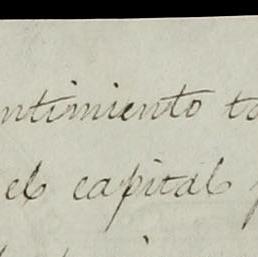 ntimiento to
el capital